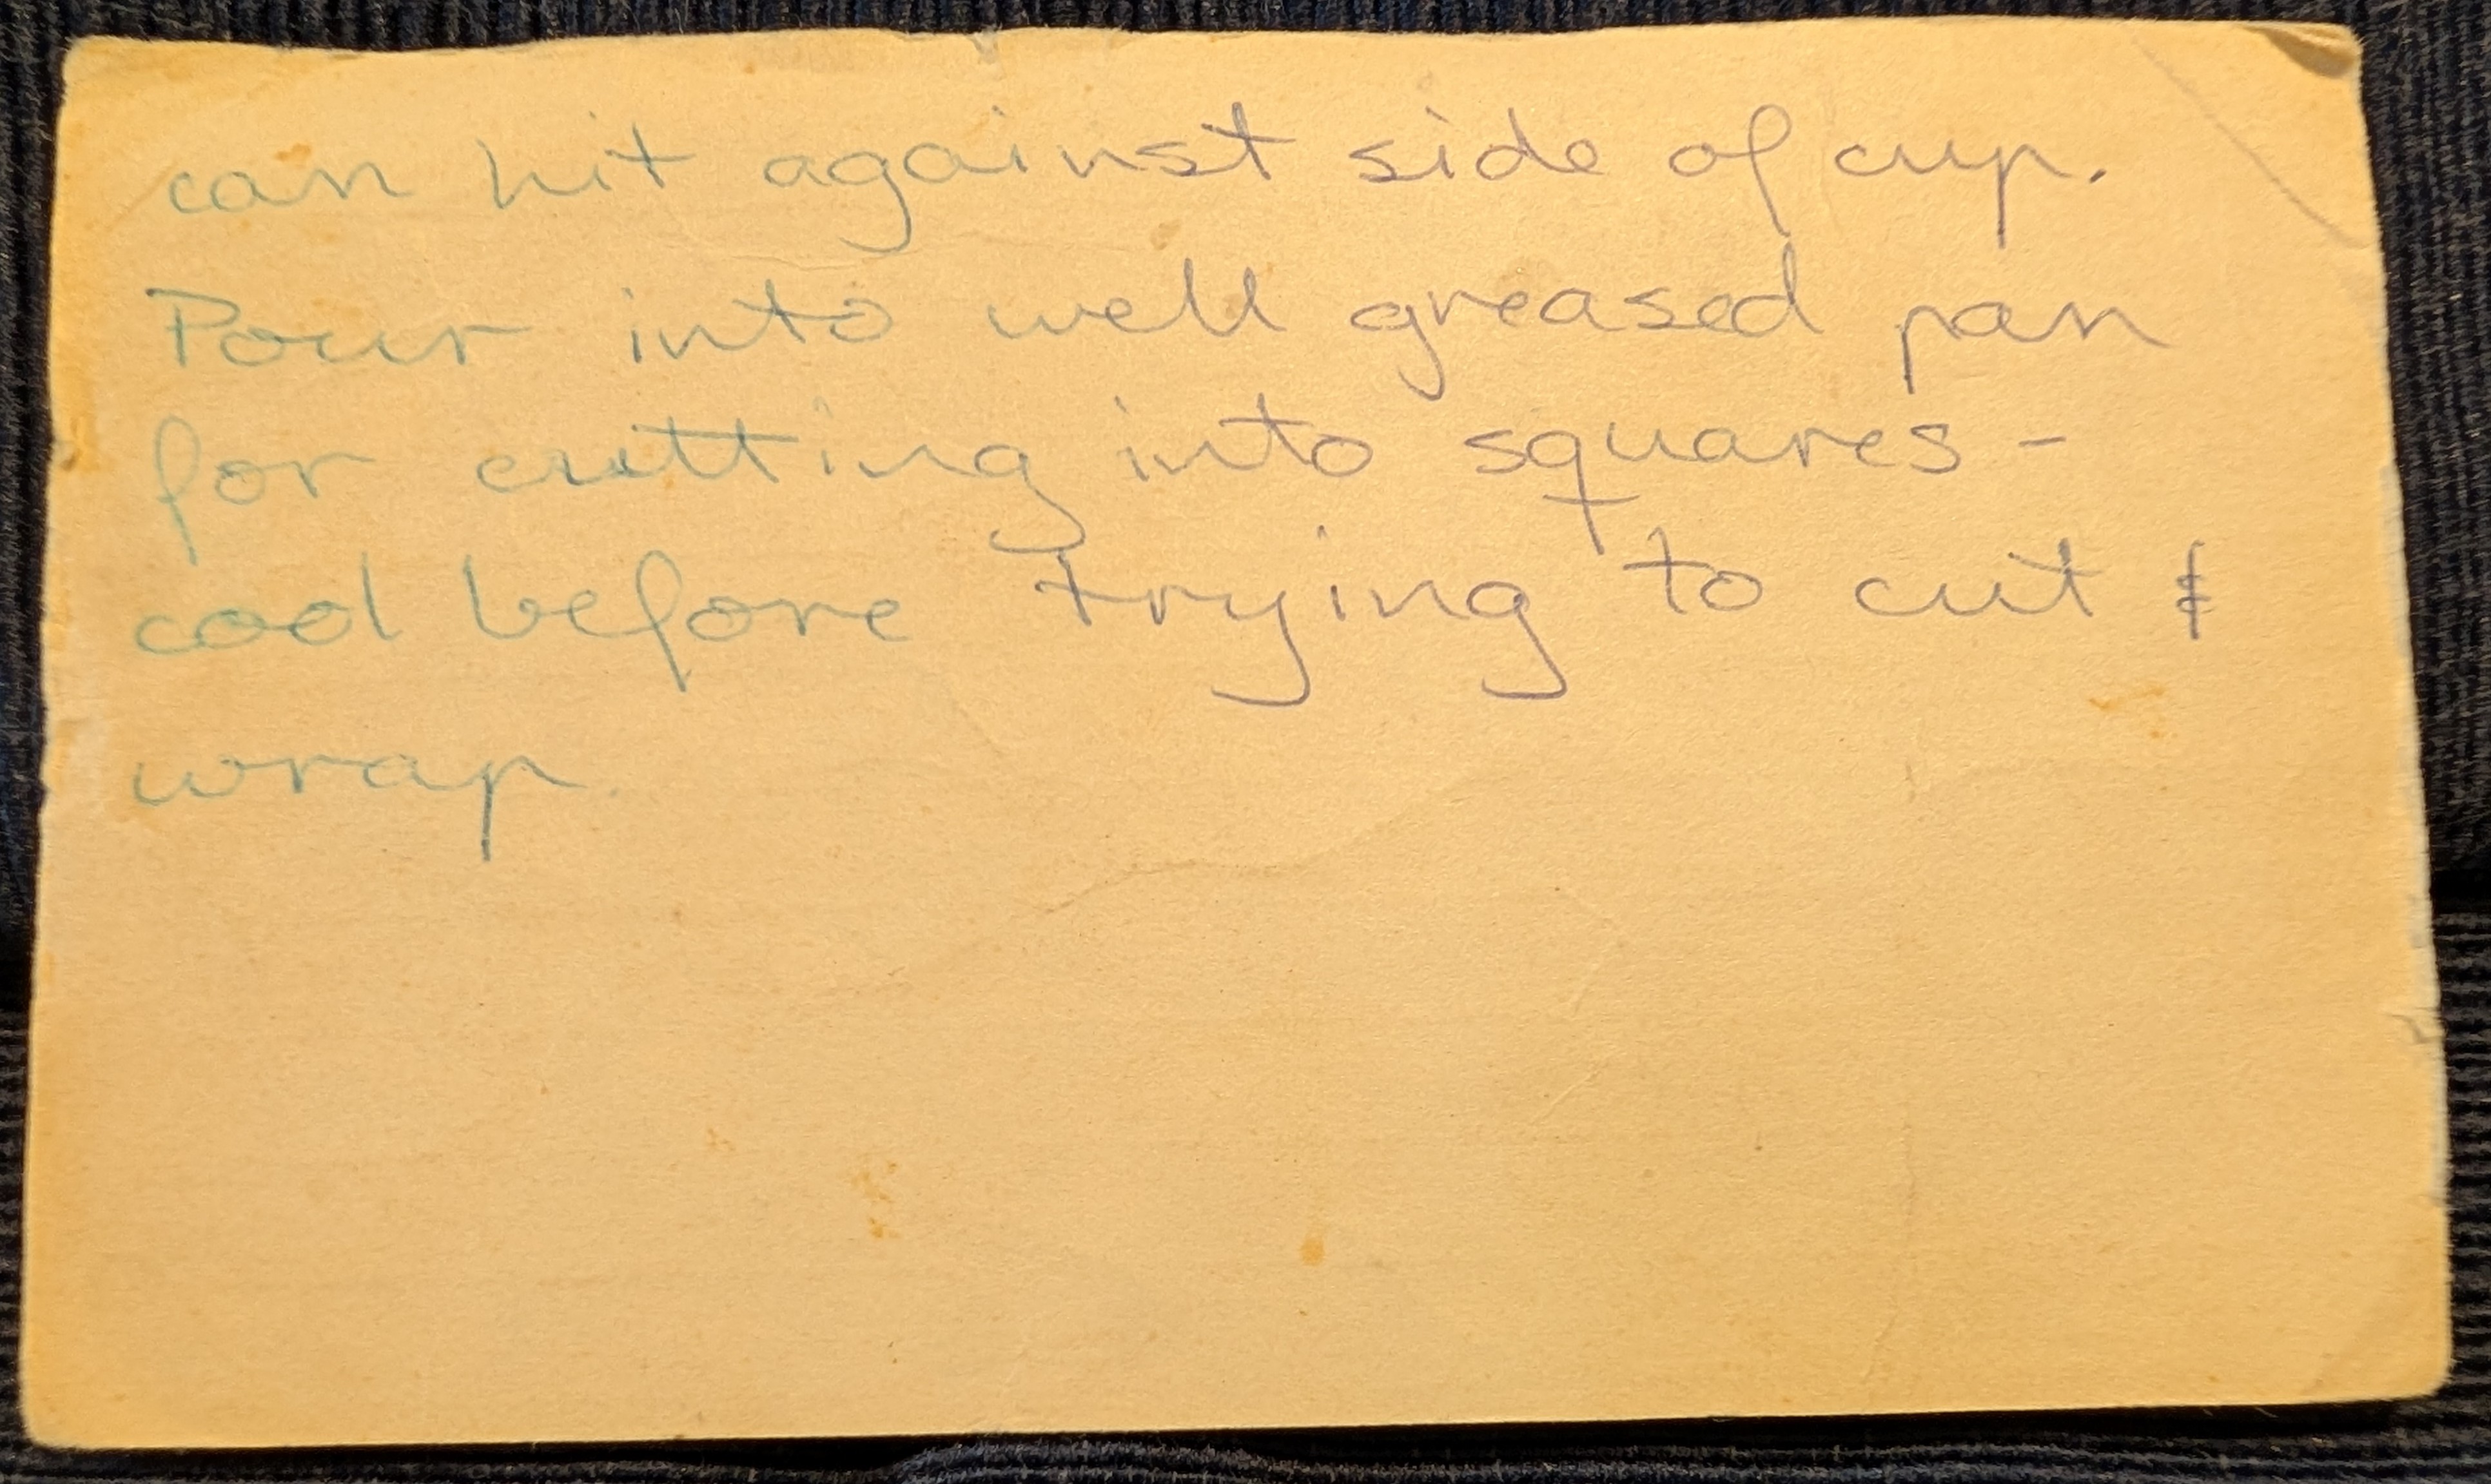 can hit against side of cup.
Pour into well greased pan
for cutting into squares -
cool before trying to cut &
wrap.